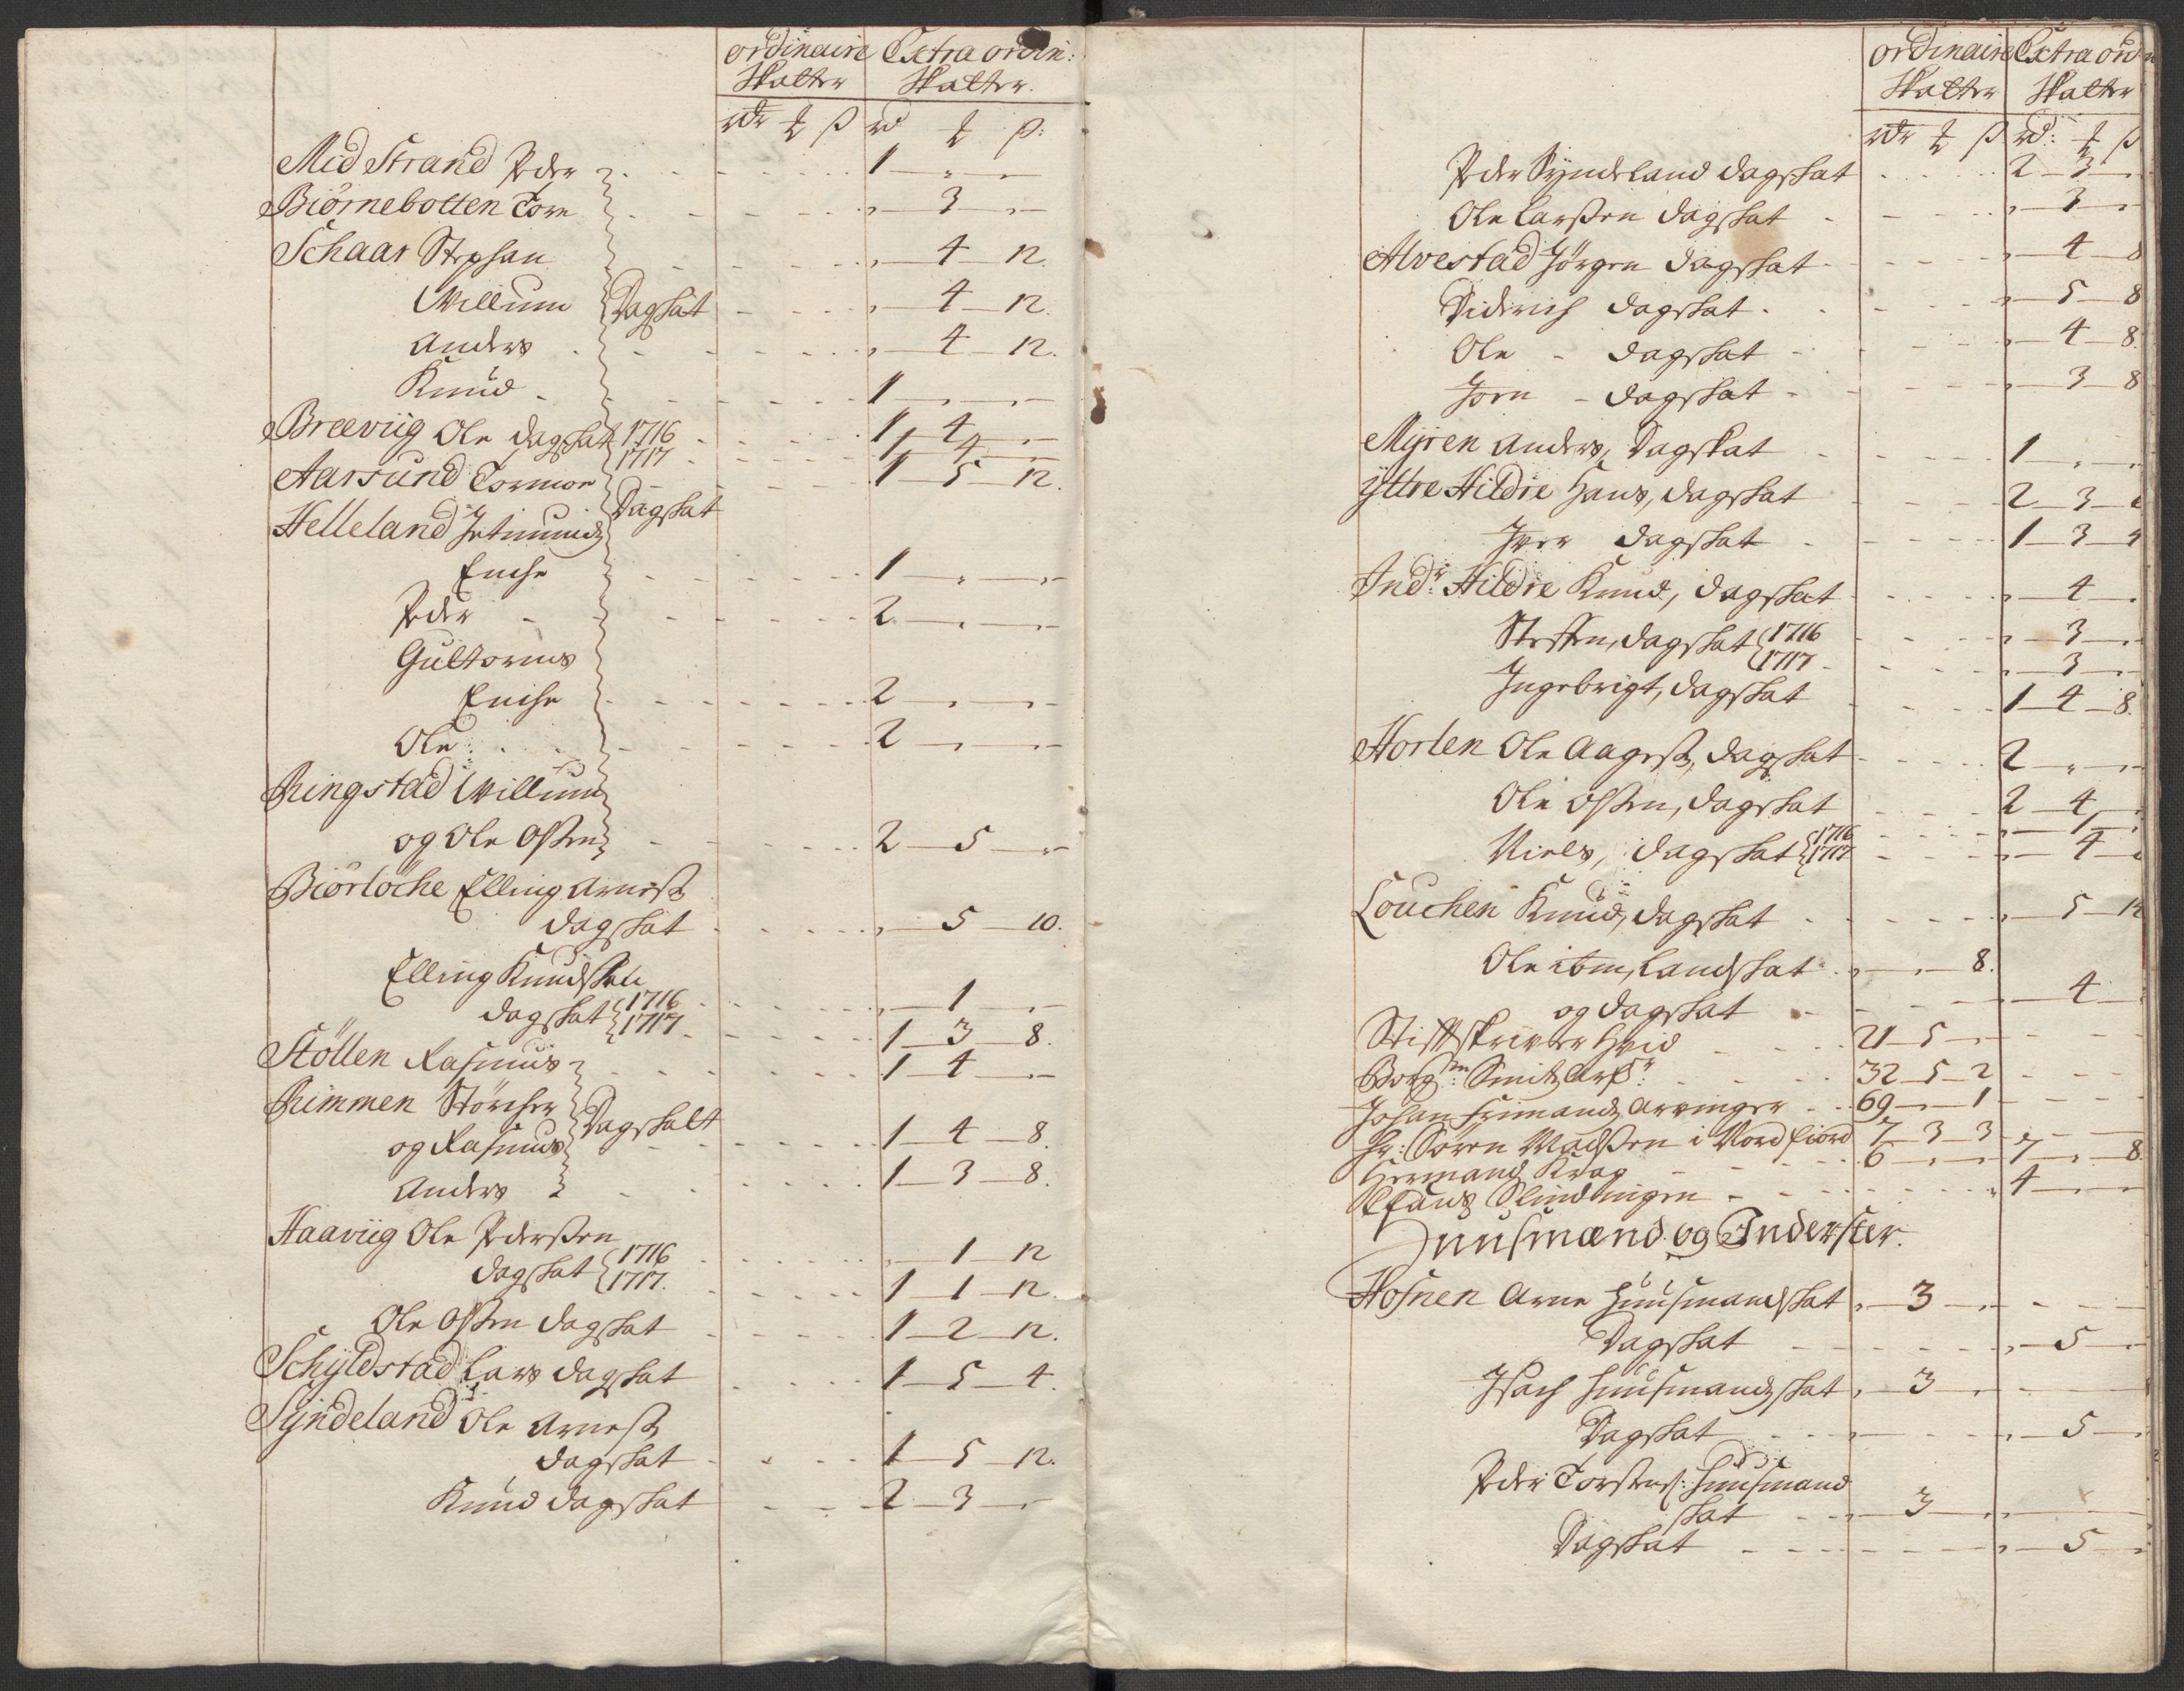 ordinaire Extraordin:
Skatter Skatter.
rdr ₰ ß rd ₰ ß:
Mid Strand Peder 1 „ „
Biørnebotten Torn „ 3 „
Schaar Stephan „ 4 12.
Willum Dagskat „ 4 12.
Anders „ 4 12.
Knud 1 „ „
Breeviig Ole dagskat 1716 1 4 „
1717 1 4 „
Aarsund Tormon 1 5 12.
Dagskat
Helleland
Enche 1 „ „
Peder 2 „ „
Guttorms
Enche 2 „ „
Ole 2 „ „
Ringstad Willum
og Ole Olssen 2 5 „
Biørløche Elling Arness
dagskat „ 5 10.
Elling Knudssen
dagskat 1716 „ 1 „
1717 1 3 8.
Støllen Rasmus 1 4 „
Rimmen Størcher
Dagskatt
og Rasmus 1 4 8.
Anders 1 3 8.
Haaviig Ole Pederssen
dagskat 1716 „ 1 12
1717. 1 1 12.
Ole Olssen dagskat 1 2 12.
Schyldstad Lars dagskat 1 5 4.
Syndeland Ole Arness
dagskat 1 5 12.
Knud dagskat 2 3 „
ordinaire Extraord
Skatter Skatter
rdr ₰ ß rd: ₰ ß
Peder Syndeland dagskat 2 3 „
Ole Larssen dagskat „ 3 „
Alvestad Jørgen dagskat „ 4 8
Diderich dagskat „ 5 8
Ole dagskat „ 4 8.
Jorn dagskat „ 3 8
Myren Anders, Dagskat 1 „ „
Yttre Hildre Hans, dagskat 2 3
Iver dagskat 1 3 4
Indr: Hildre Knud, dagskat „ 4 „
Steffen, dagskat 1716 „ 3 „
1717 „ 3 „
Ingebrigt, dagskat 1 4 8.
Horlen Ole Aagess, dagskat 2 „ „
Ole Olssen, dagskat 2 4 „
Niels, dagskat 1716 „ 1 „
1717 „ 4 „
Louchen Knud, dagskat „ 5 12
Ole ibm, Landskat „ „ 8.
og dagskat „ 4
Stiftskriver Hvid 21 5 „
Borgm: Smitz 32 5 2
Johan 69 „ 1
Hr: Søren Madssen i Nordfiord 7 3 3
Hermand Krag 6 „ „ 7 „ 8.
4 „ „
Huusmænd og Inderster.
Hosnen Arne Huusmandskat „ 3 „
Dagskat „ 5 „
Isach Huusmandskat „ 3 „
Dagskat „ 5 „
Peder Torstens: Huusmand
skat „ 3 „
Dagskat „ 5 „